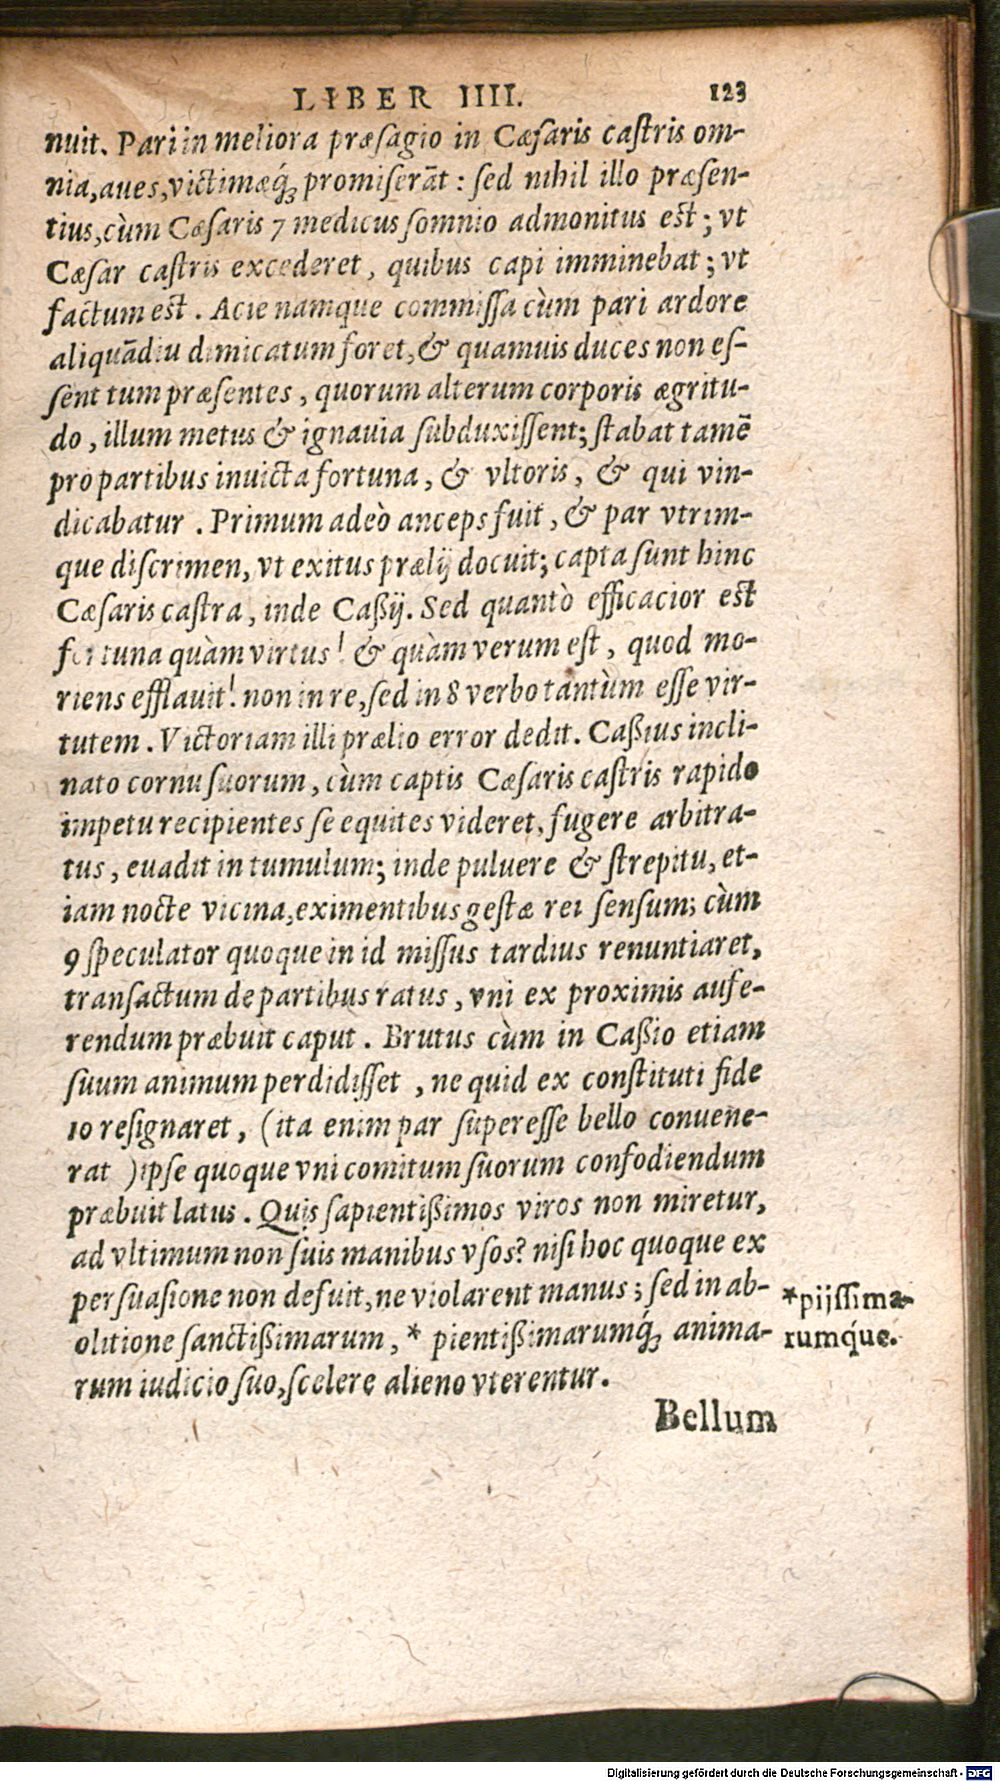 LIBER IIII. 123
nuit. Pari in meliora præsagio in Cæsaris castris om-
nia, aues, victimæq́; promiserāt : sed nihil illo præsen-
tius, cùm Cæsaris 7 medicus somnio admonitus est; vt
Cæsar castris excederet, quibus capi imminebat; vt
factum est. Acie namque commissa cùm pari ardore
aliquādiu dimicatum foret, & quamuis duces non es-
sent tum præsentes, quorum alterum corporis ægritu-
do, illum metus & ignauia subduxissent; stabat tamē
pro partibus inuicta fortuna, & vltoris, & qui vin-
dicabatur. Primum adeò anceps fuit, & par vtrim-
que discrimen, vt exitus prælij docuit; capta sunt hinc
Cæsaris castra, inde Caßij. Sed quantò efficacior est
fortuna quàm virtus! & quàm verum est, quod mo-
riens efflauit! non in re, sed in 8 verbo tantùm esse vir-
tutem. Victoriam illi prælio error dedit. Caßius incli-
nato cornu suorum, cùm captis Cæsaris castris rapido
impetu recipientes se equites videret, fugere arbitra-
tus, euadit in tumulum; inde puluere & strepitu, et-
iam nocte vicina, eximentibus gestæ rei sensum; cùm
9 speculator quoque in id missus tardius renuntiaret,
transactum de partibus ratus, vni ex proximis aufe-
rendum præbuit caput. Brutus cùm in Caßio etiam
suum animum perdidisset, ne quid ex constituti fide
10 resignaret, (ita enim par superesse bello conuene-
rat) ipse quoque vni comitum suorum confodiendum
præbuit latus. Quis sapientißimos viros non miretur,
ad vltimum non suis manibus vsos? nisi hoc quoque ex
persuasione non defuit, ne violarent manus; sed in ab-
olitione sanctißimarum, * pientißimarumq́; anima-
rum iudicio suo, scelere alieno vterentur.
*pijssima-
rumq́ue.
Bellum
Digitalisierung gefördert durch die Deutsche Forschungsgemeinschaft - DFG